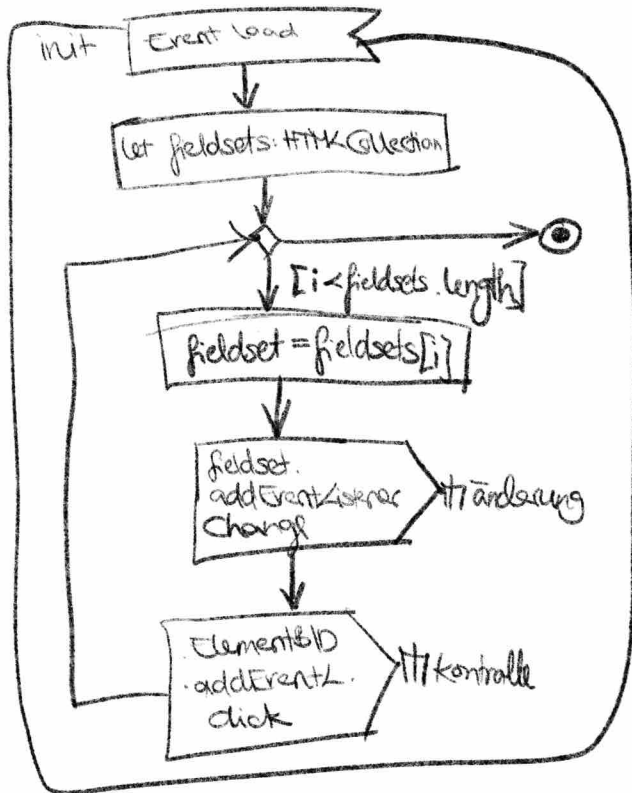 init
Event load
let fieldsets: HTMLCollection
[i<fieldsets.length]
fieldset = fieldsets[i]
fieldset.
addEventListener
Change
änderung
ElementBID
.addEventL.
click
kontrolle